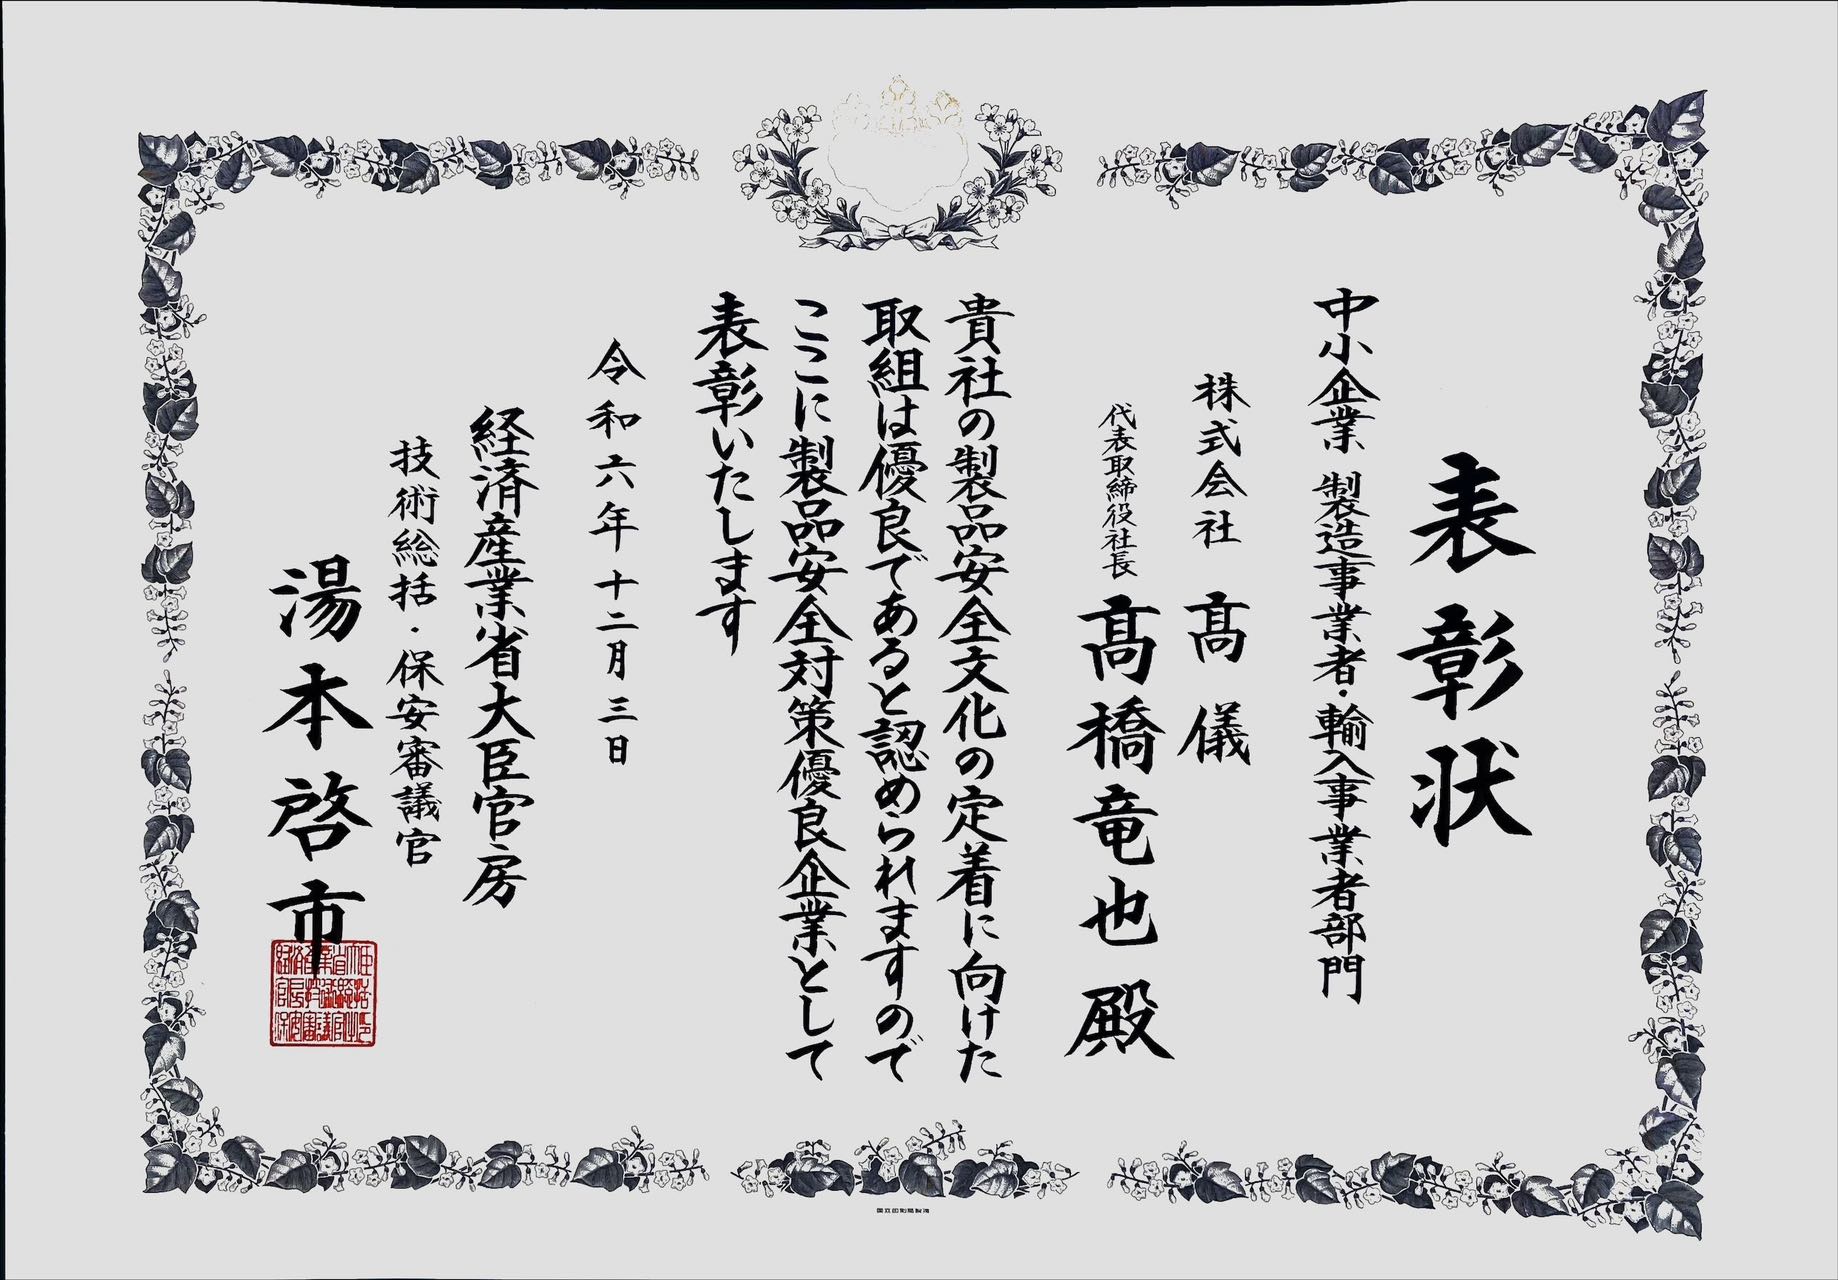 表彰状
中小企業 製造事業者・輸入事業者部門
株式会社 髙儀
代表取締役社長 髙橋竜也 殿
貴社の製品安全文化の定着に向けた
取組は優良であると認められますので
ここに製品安全対策優良企業として
表彰いたします
令和六年十二月三日
経済産業省大臣官房
技術総括・保安審議官
湯本啓市